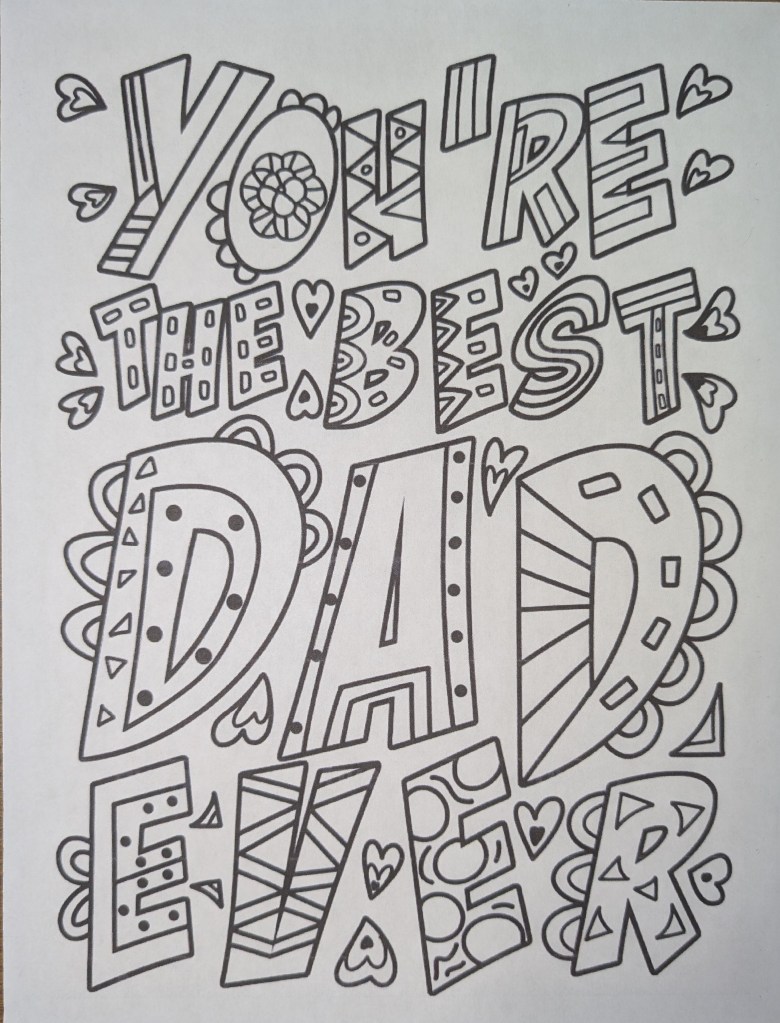 YOU'RE
THE BEST
DAD
EVER